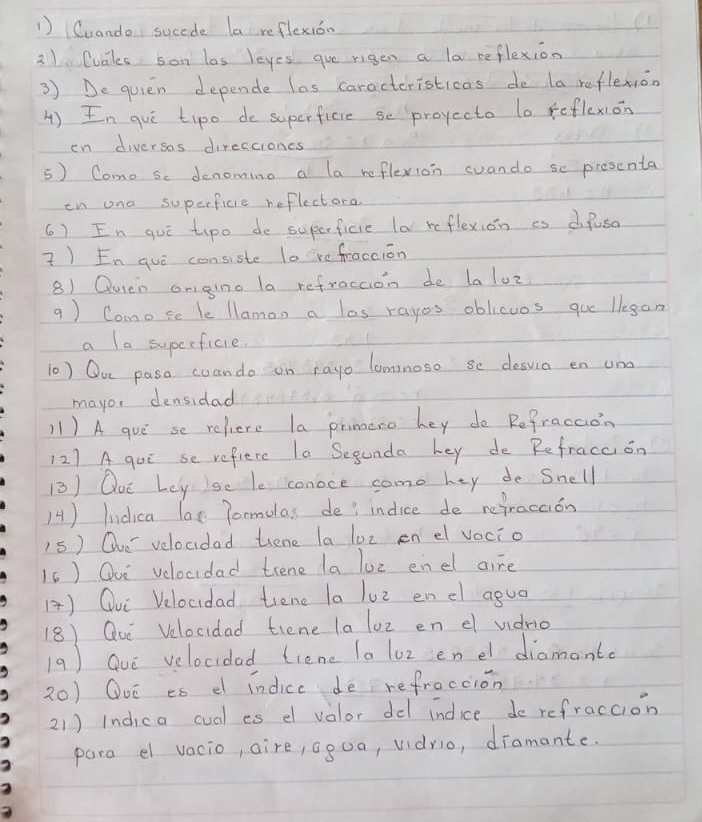 1) Cuando sucede la reflexión
2) Cuáles son las leyes que rigen a la reflexión
3) De quién depende las características de la reflexión
4) En qué tipo de superficie se proyecta la reflexión
en diversas direcciones
5) Como se denomina a la reflexión cuando se presenta
en una superficie reflectora.
6) En qué tipo de superficie la reflexión es difusa
7) En qué consiste la refracción
8) Quien origina la refracción de la luz.
9) Como se le llaman a los rayos oblicuos que llegan
a la superficie.
10) Que pasa cuando un rayo luminoso se desvia en una
mayor densidad
11) A qué se refiere la primera Ley de Refracción
12) A qué se refiere la Segunda Ley de Refracción
13) Qué Ley se le conoce como Ley de Snell
14) Indica las formulas de: indice de refracción
15) Qué velocidad tiene la luz en el vacío
16) Qué velocidad tiene la luz en el aire
17) Qué Velocidad tiene la luz en el agua
18) Qué Velocidad tiene la luz en el vidrio
19) Qué velocidad tiene la luz en el diamante
20) Qué es el índice de refracción
21) Indica cual es el valor del índice de refracción
para el vacio, aire, agua, vidrio, diamante.